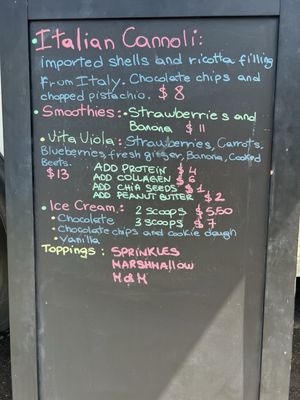 • Italian Cannoli:
imported shells and ricotta filling
from Italy. Chocolate chips and
chopped pistachio. $8
• Smoothies: • Strawberries and
Banana $11
• Vita Viola: Strawberries, Carrots,
Blueberries, fresh ginger, Banana, Cooked
Beets.
$13
ADD PROTEIN $4
ADD COLLAGEN $6
ADD CHIA SEEDS $1
ADD PEANUT BUTTER $2
• Ice Cream: 2 scoops $5,50
• Chocolate 3 scoops $7
• Chocolate chips and cookie daugh
• Vanilla
Toppings: SPRINKLES
MARSHMALLOW
M&M